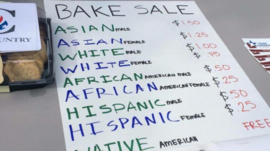 BAKE SALE
ASIAN MALE $1.50
ASIAN FEMALE $1.25
WHITE MALE $1.00
WHITE FEMALE
AFRICAN AMERICAN MALE $.50
AFRICAN AMERICAN FEMALE $.25
HISPANIC MALE $.50
HISPANIC FEMALE $.25
NATIVE AMERICAN FREE
COUNTRY